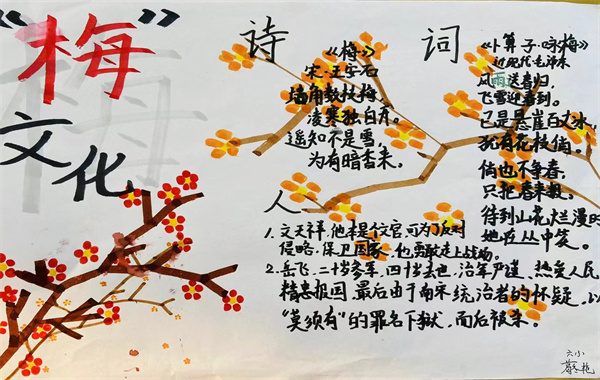 “梅”
文化
诗
《梅》
宋·王安石
墙角数枝梅，
凌寒独自开。
遥知不是雪，
为有暗香来。
词
《卜算子·咏梅》
近现代毛泽东
风雨送春归，
飞雪迎春到。
已是悬崖百丈冰，
犹有花枝俏。
俏也不争春，
只把春来报。
待到山花烂漫时
她在丛中笑。
人
1、文天祥，他本是个文官，可为了反对
侵略，保卫国家，他勇敢走上战场。
2、岳飞，二十岁参军，四十岁去世，治军严谨、热爱人民
精忠报国，最后由于南宋统治者的怀疑，以
“莫须有”的罪名下狱，而后被杀。
六小